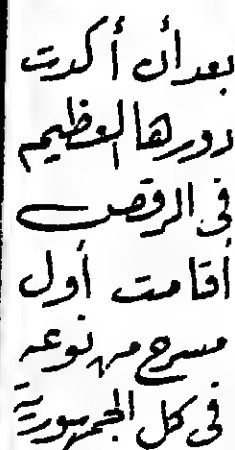 بعد أن أكدت
دورها العظيم
فى الرقص
أقامت أول
مسرح من نوعه
فى كل الجمهورية